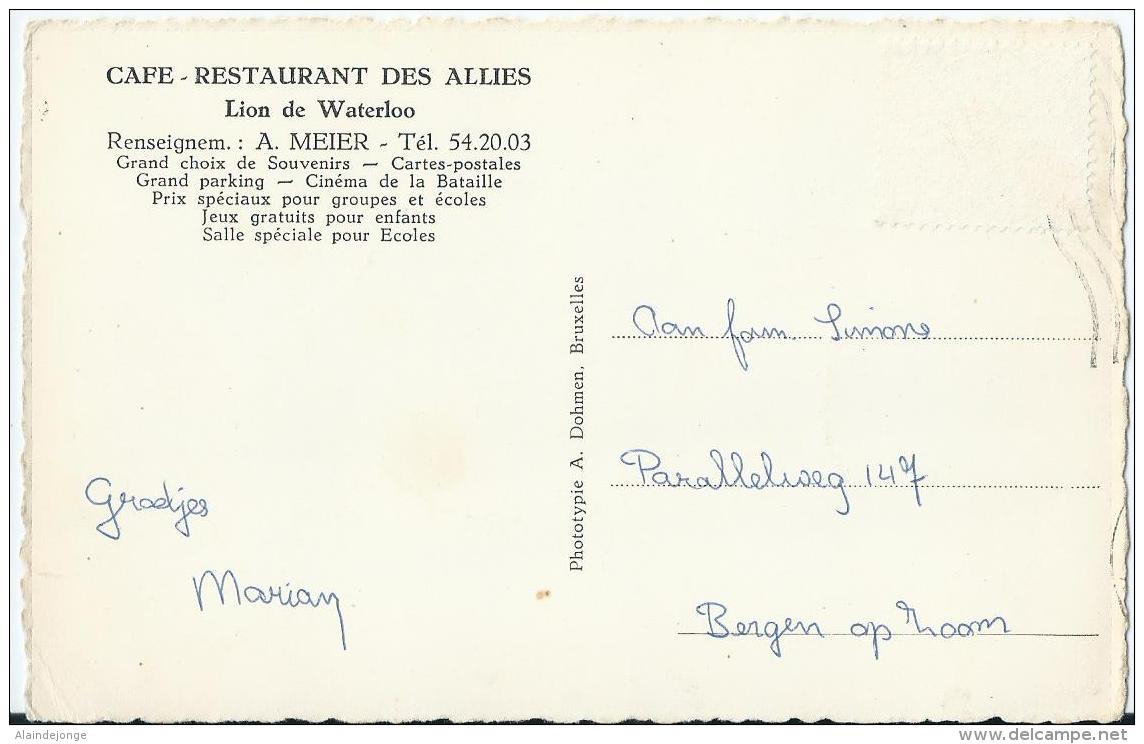 CAFE - RESTAURANT DES ALLIES
Lion de Waterloo
Renseignem. : A. MEIER - Tél. 54.20.03
Grand choix de Souvenirs — Cartes-postales
Grand parking — Cinéma de la Bataille
Prix spéciaux pour groupes et écoles
Jeux gratuits pour enfants
Salle spéciale pour Ecoles
Groetjes
Marian
Phototypie A. Dohmen, Bruxelles
Aan fam. Simons
Parallelweg 147
Bergen op Zoom
Alaindejonge
delcampe.net